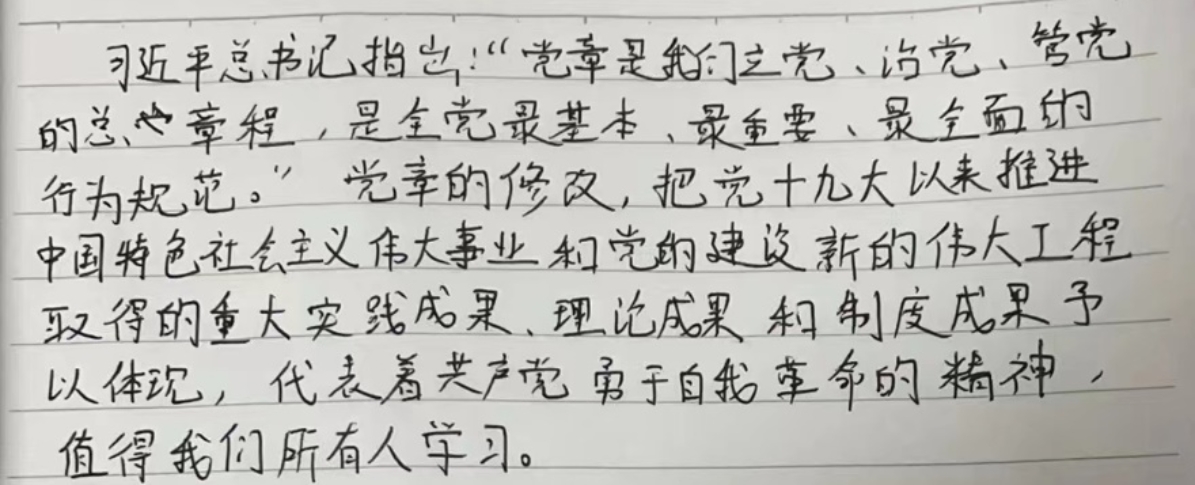 习近平总书记指出:“党章是我们立党、治党、管党
的总章程,是全党最基本、最重要、最全面的
行为规范。”党章的修改,把党十九大以来推进
中国特色社会主义伟大事业和党的建设新的伟大工程
取得的重大实践成果、理论成果和制度成果予
以体现,代表着共产党勇于自我革命的精神,
值得我们所有人学习。